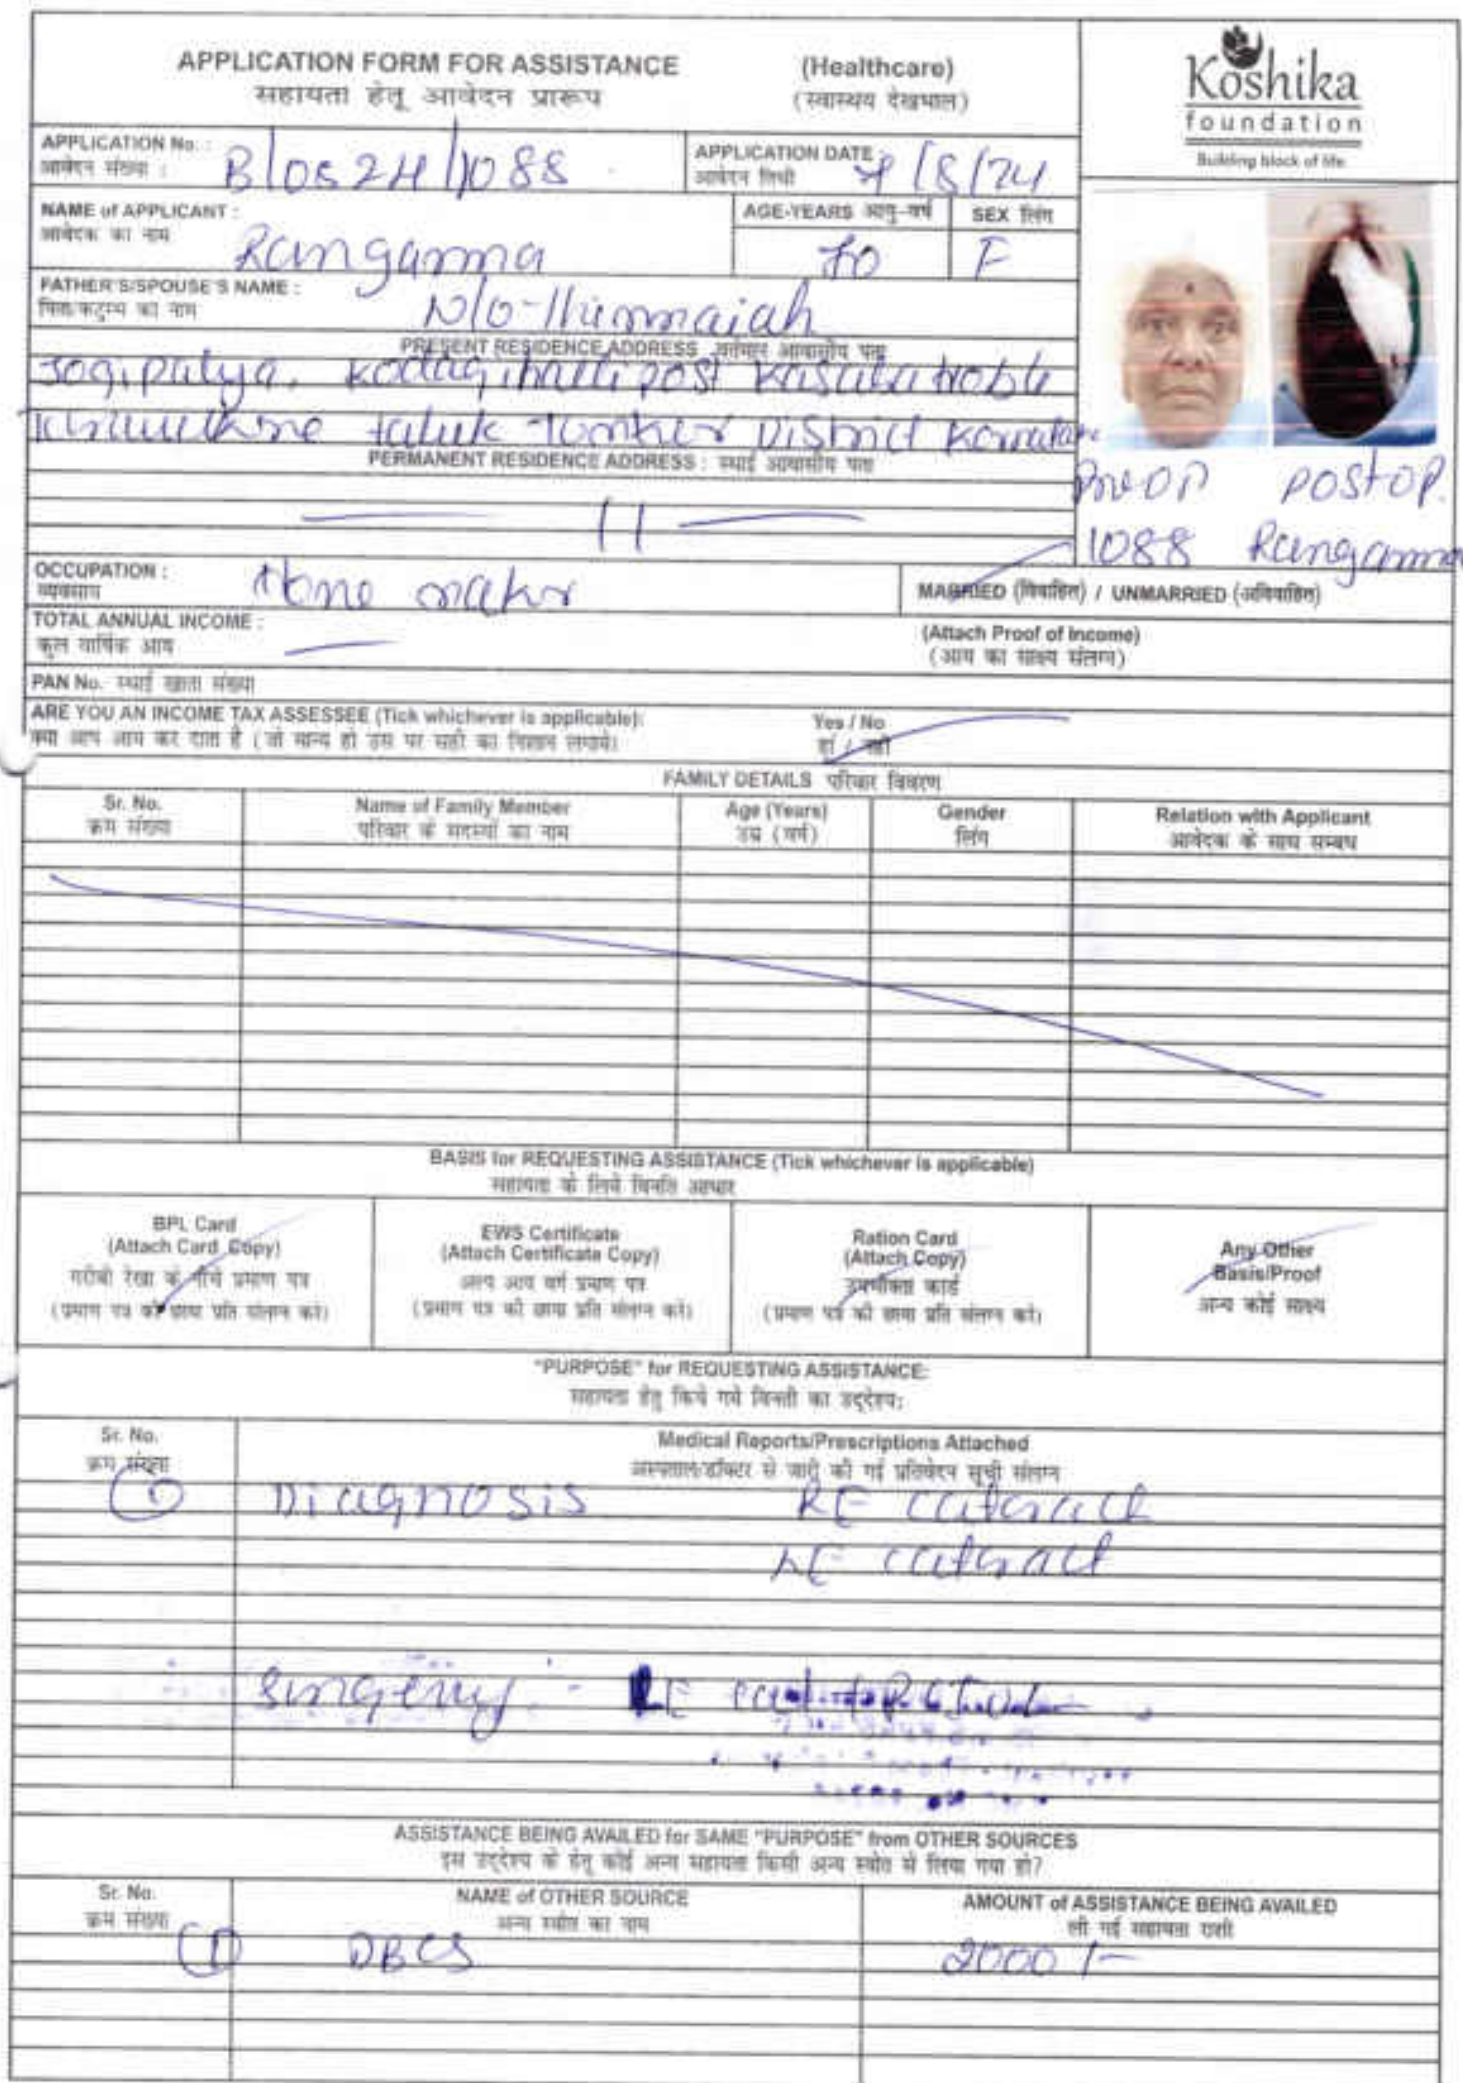 APPLICATION FORM FOR ASSISTANCE (Healthcare)
सहायता हेतू आवेदन प्रारूप (स्वास्थय देखभाल)
Koshika
foundation
Building block of life
APPLICATION No. :
आवेदन संख्या :
APPLICATION DATE :
आवेदन तिथी
/8/24
NAME of APPLICANT :
आवेदक का नाम
Rangamma
AGE-YEARS आयु-वर्ष
70
SEX लिंग
F
FATHER'S/SPOUSE'S NAME :
पिता/कटुम्ब का नाम
PRESENT RESIDENCE ADDRESS वर्तमान आवासीय पता
Jogipalya, Kodagihalli post
taluk Tumkur District Karnataka
PERMANENT RESIDENCE ADDRESS : स्थाई आवासीय पता
11
Preop Postop.
1088 Rangamma
OCCUPATION :
व्यवसाय
Home maker
MARRIED (विवाहित) / UNMARRIED (अविवाहित)
TOTAL ANNUAL INCOME :
कुल वार्षिक आय
(Attach Proof of Income)
(आय का साक्ष्य संलग्न)
PAN No. स्थाई खाता संख्या
ARE YOU AN INCOME TAX ASSESSEE (Tick whichever is applicable): Yes / No
क्या आप आय कर दाता है (जो मान्य हो उस पर सही का निशान लगाये) हां / नही
FAMILY DETAILS परिवार विवरण
Sr. No. Name of Family Member Age (Years) Gender Relation with Applicant
क्रम संख्या परिवार के सदस्यों का नाम उम्र (वर्ष) लिंग आवेदक के साथ सम्बध
BASIS for REQUESTING ASSISTANCE (Tick whichever is applicable)
सहायता के लिये विनति आधार
BPL Card
(Attach Card Copy)
गरीबी रेखा के नीचे प्रमाण पत्र
(प्रमाण पत्र की छाया प्रति संलग्न करे)
EWS Certificate
(Attach Certificate Copy)
अल्प आय वर्ग प्रमाण पत्र
(प्रमाण पत्र की छाया प्रति संलग्न करे)
Ration Card
(Attach Copy)
उपभोक्ता कार्ड
(प्रमाण पत्र की छाया प्रति संलग्न करे)
Any Other
Basis/Proof
अन्य कोई साक्ष्य
"PURPOSE" for REQUESTING ASSISTANCE:
सहायता हेतु किये गये विनती का उद्देश्य:
Sr. No. Medical Reports/Prescriptions Attached
क्रम संख्या अस्पताल/डॉक्टर से जारी की गई प्रतिवेदन सूची संलग्न
1 Diagnosis RE cataract
LE cataract
Surgery :- LE
ASSISTANCE BEING AVAILED for SAME "PURPOSE" from OTHER SOURCES
इस उद्देश्य के हेतु कोई अन्य सहायता किसी अन्य स्त्रोत से लिया गया हो?
Sr. No. NAME of OTHER SOURCE AMOUNT of ASSISTANCE BEING AVAILED
क्रम संख्या अन्य स्त्रोत का नाम ली गई सहायता राशी
1 DBCS 2000/-